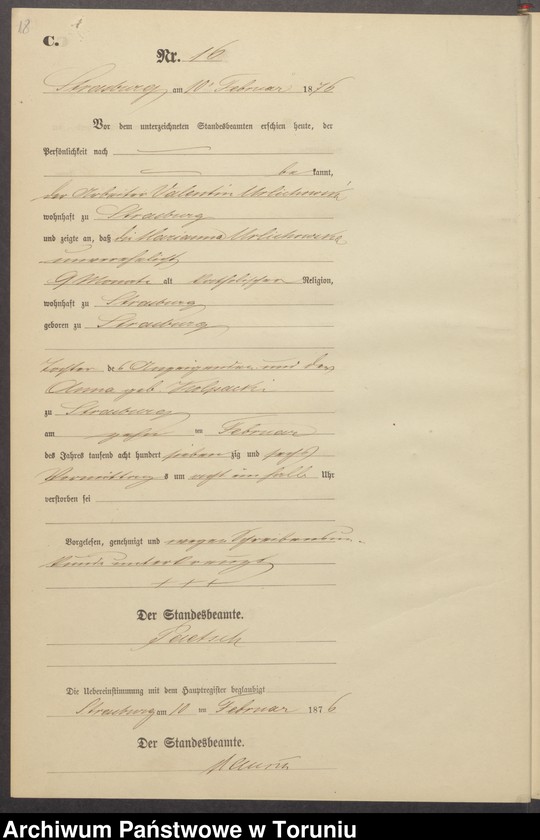 18
C.
Nr. 16
Strasburg, am 10 Februar 1876
Vor dem unterzeichneten Standesbeamten erschien heute, der
Persönlichkeit nach
be kannt,
der Arbeiter Valentin
wohnhaft zu Strasburg
und zeigte an, daß die Marianna
unverehelicht
9 Monate alt katholischer Religion,
wohnhaft zu Strasburg
geboren zu Strasburg
Tochter des Anzeigenden und der
Anna geb.
zu Strasburg
am Februar
des Jahres tausend acht hundert sieben zig und sechs
Vormittags um acht ein halb Uhr
verstorben sei
Vorgelesen, genehmigt und wegen Schreibensun-
kunde unterkreuzt
+ + +
Der Standesbeamte.
Die Uebereinstimmung mit dem Hauptregister beglaubigt
Strasburg am 10 ten Februar 1876
Der Standesbeamte.
Archiwum Państwowe w Toruniu